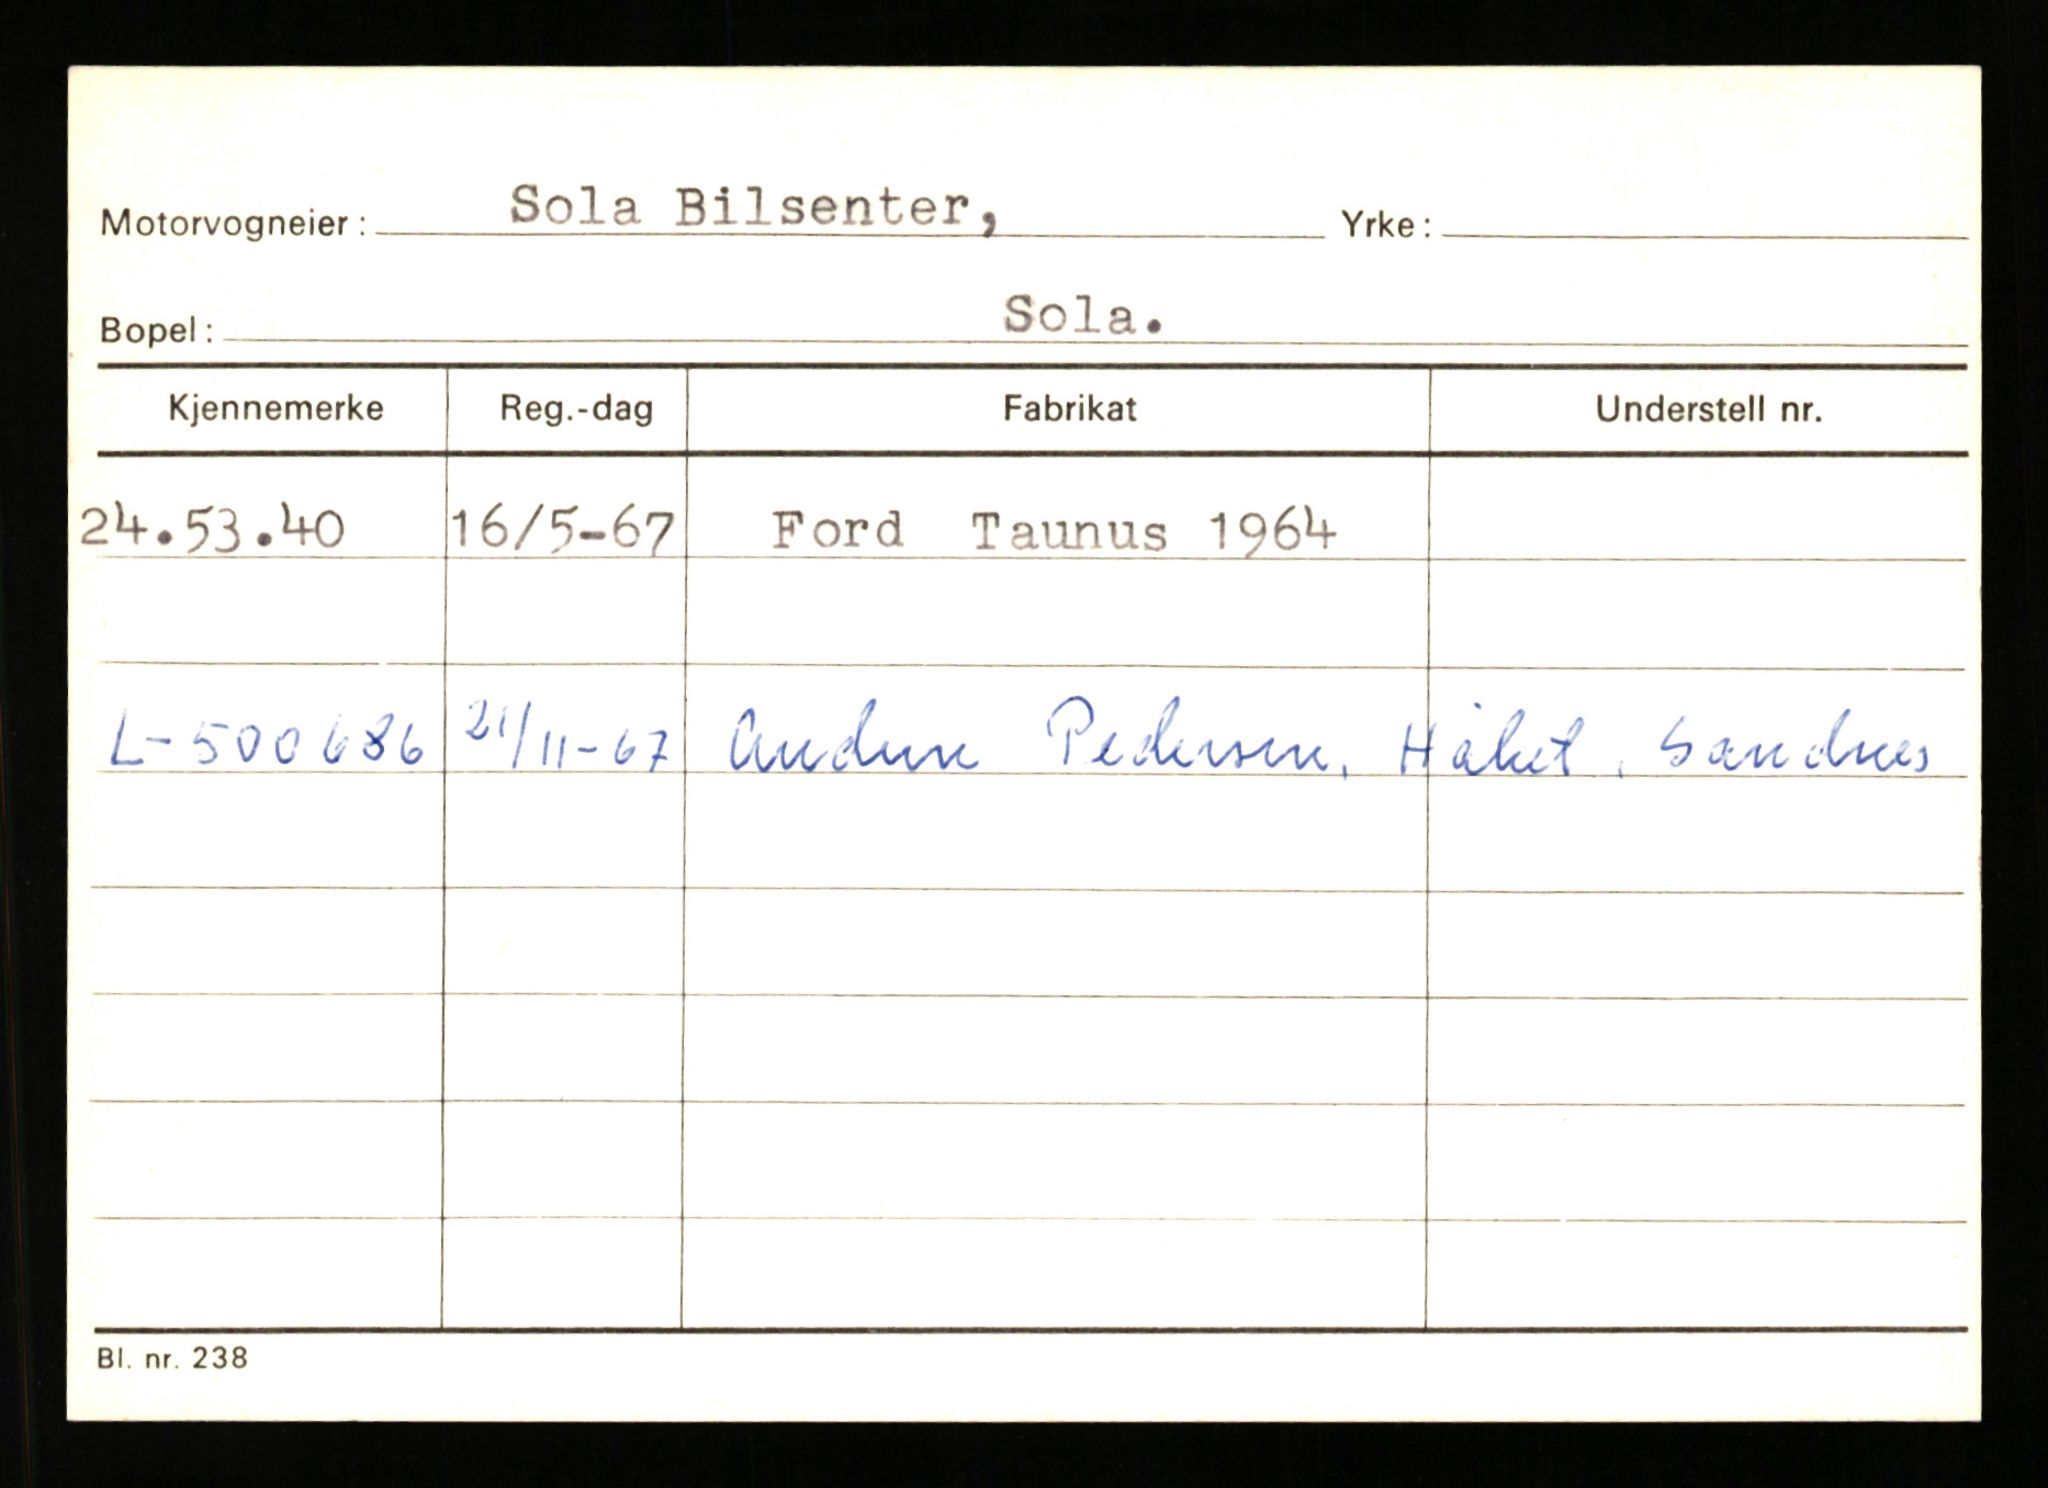 Motorvogneier: Sola Bilsenter, Yrke:
Bopel: Sola.
Kjennemerke Reg.-dag Fabrikat Understell nr.
24.53.40 16/5-67 Ford Taunus 1964
L-500686 21/11-67 Pedersen, Sandnes
Bl. nr. 238